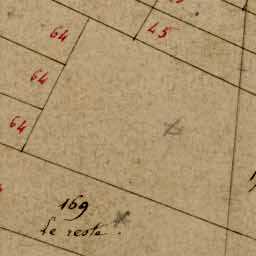 64
45
64
64
169
le reste.